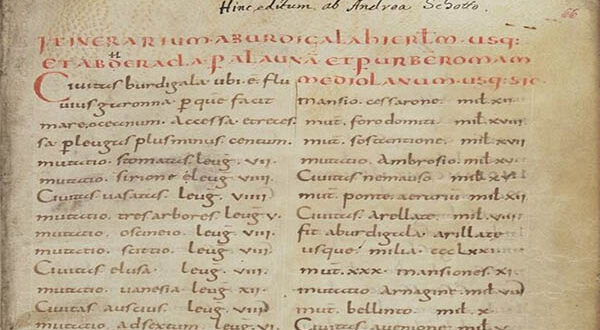 Hinc editum ab Andrea Schotto.
66
ITINERARIUM A BURDIGALA HIERLM USQ:
ET AB HERACLA P AULAUNA ET P URBE ROMAM
MEDIOLANUM USQ: SIC
Civitas burdigala ubi e flu
vius garonna p que facit
mare oceanum. Accessa et reces
sa p leugas plus minus centum.
mutatio stomatas leug. viii.
mutatio sirione leug. viiii.
Civitas vasatas leug. viiii
mutatio tres arbores leug v.
mutatio oscineio leug. viii.
mutatio scittio leug. viii.
Civitas elusa leug. viii.
mutatio vanesia leug. xii.
Civitas auscius leug. viii
mutatio ad sextum leug. vi
mansio cessarone mil xii
mut. foro domiti mil. xviii.
mut. sostantione mil. xvii
mutatio Ambrosio. mil. xv.
Civitas nemauso mil. xv.
mut. ponte aerarium mil xii
Civitas arellate mil. viii
fit a burdigala arillate
usque milia ccclxxi
mut. xxx. mansiones xi
mutatio arnagine. mil viii
mut. bellinto mil. x.
Civitas avenione mil. v